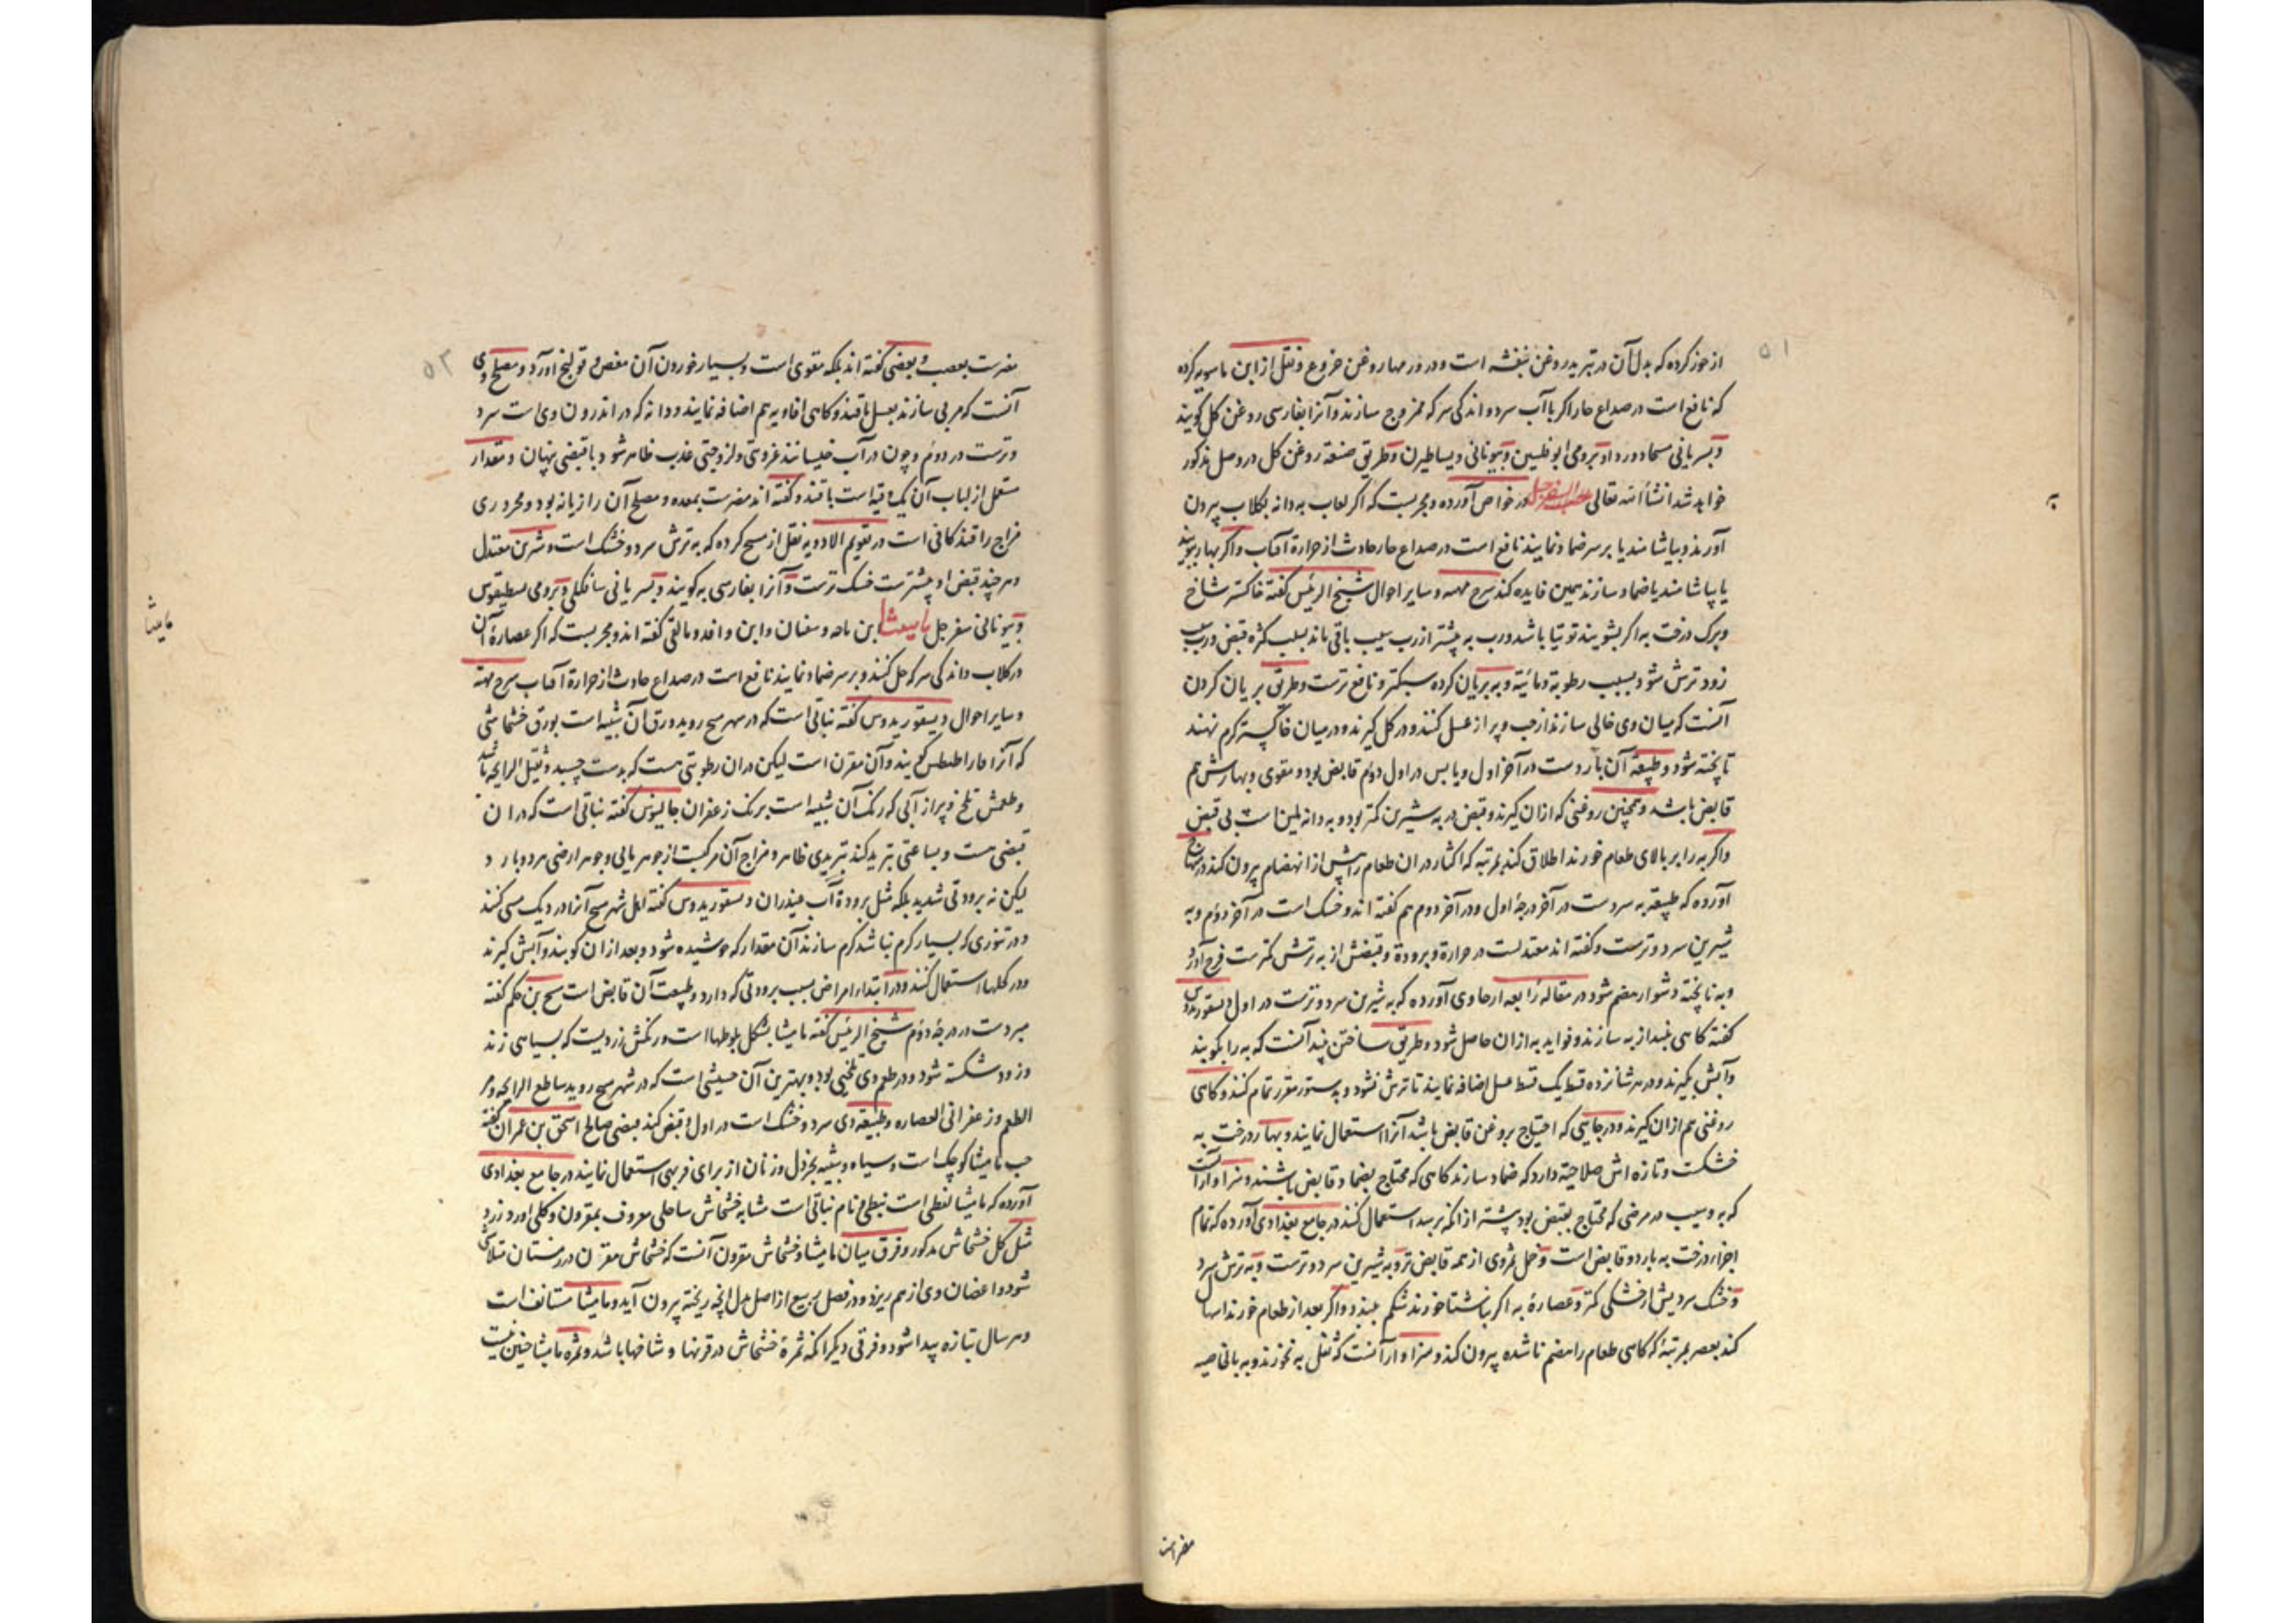 ۵۱
از حوز کرده که بدل آن در تبرید روغن بنفشه است و در ورمها روغن خروع و نقل از ابن ماسویه کرده
که نافع است در صداع حار اکر با آب سرد و اندکی سرکه ممزوج سازند و آنرا بفارسی روغن کل کویند
و بسریانی و برومی و بیونانی و طریق صنعة روغن کل در وصل مذکور
خواهد شد انشاء الله تعالی حب السفرجل در خواص آورده و مجربست که اکر لعاب به دانه بکلاب بیرون
آورند و بیاشامند یا بر سر ضماد نمایند نافع است در صداع حار حادث از حرارة آفتاب و اکر بهار ببویند
یا بیاشامند یا ضماد سازند همین فایده کند شرح مهیه و سایر احوال شیخ الرئیس کفته خاکستر شاخ
و برک درخت به اکر بشویند توتیا باشد و رب به بیشتر از رب سیب باقی ماند بسبب کثرة قبض و رب سیب
زود ترش شود بسبب رطوبة و مائیة و به بریان کرده سبکتر و نافع ترست و طریق بریان کردن
آنست که میان وی خالی سازند از حب و پر از عسل کنند و در کل کیرند و در میان خاکستر کرم نهند
تا پخته شود و طبیعة آن باردست در آخر اول و یابس در اول دوم قابض بود و مقوی و بهارش هم
قابض باشد و همچنین روغنی که ازان کیرند و قبض در به شیرین کمتر بود و به دانه ملین است بی قبض
و اکر به را بر بالای طعام خورند اطلاق کند بمرتبه که اکثار دران طعام را پیش از انهضام بیرون کند در منهاج
آورده که طبیعة به سردست در آخر درجهٔ اول و در آخر دوم هم کفته اند و خشک است در آخر دوم و به
شیرین سرد و ترست و کفته اند معتدلست در حرارة و برودة و قبضش از به ترش کمترست فرح آورد
و به ناپخته دشوار هضم شود در مقالهٔ رابعه از حاوی آورده که به شیرین سرد و ترست در اول دیسقوریدوس
کفته کاهی نبیذ از به سازند و فواید به ازان حاصل شود و طریق ساختن نبیذ آنست که به را بکوبند
و آبش بکیرند و در هر شانزده قسط یک قسط عسل اضافه نمایند تا ترش نشود و بدستور مقرر تمام کنند و کاهی
روغنی هم ازان کیرند و در جایی که احتیاج بروغن قابض باشد آنرا استعمال نمایند و بهار درخت به
خشکست و تازه اش صلاحیة دارد که ضماد سازند کاهی که محتاج بضماد قابض باشند و سزاوار آنست
که به و سیب در مرضی که محتاج بقبض بود پیشتر از آنکه برسد استعمال کنند در جامع بغدادی آورده که تمام
اجزاء درخت به بارد و قابض است و حمل بری وی از همه قابض تر و به شیرین سرد و ترست و به ترش سرد
و خشک سردیش از خشکی کمتر و عصارهٔ به اکر ناشتا خورند شکم ببندد و اکر بعد از طعام خورند اسهال
کند بعصر بمرتبهٔ که کاهی طعام را هضم ناشده بیرون کند و سزاوار آنست که ثفل به نخورند و به بالخاصیه
به
مضر است
۵۲
مضرست بعصب و بعضی کفته اند بلکه مقوی است و بسیار خوردن آن مغص و قولنج آورد و مصلح وی
آنست که مربی سازند بعسل یا قند و کاهی افاویه هم اضافه نمایند و دانه که در اندرون وی است سرد
و ترست در دوم و چون در آب خیسانند غرویتی و لزوجتی عذب ظاهر شود با قبضی پنهان و مقدار
مستعمل از لباب آن یک وقیه است با قند و کفته اند مضرست بمعده و مصلح آن رازیانه بود و محروری
مزاج را قند کافی است در تقویم الادویه نقل از مسیح کرده که به ترش سرد و خشک است و شیرین معتدل
و هر چند قبض او بیشترست خشک ترست و آنرا بفارسی به کویند و بسریانی و برومی
و بیونانی سفرجل مامیثا ابن ماسه و سفیان و ابن وافد و مالقی کفته اند و مجربست که اکر عصارهٔ آن
در کلاب و اندکی سرکه حل کنند و بر سر ضماد نمایند نافع است در صداع حادث از حرارة آفتاب شرح مهیة
و سایر احوال دیسقوریدوس کفته نباتی است که در منبج روید ورق آن شبیه است بورق خشخاشی
که آنرا کویند و آن مقرن است لیکن دران رطوبتی هست که بدست چسبد و ثقیل الرایحه باشد
و طعمش تلخ و پر از آبی که رنک آن شبیه است برنک زعفران جالینوس کفته نباتی است که دران
قبضی هست و بساعتی تبرید کند تبریدی ظاهر و مزاج آن مرکبست از جوهر مایی و جوهر ارضی هر دو بارد
لیکن نه برودتی شدید بلکه مثل برودة آب غدیران دیسقوریدوس کفته اهل شهر منبج آنرا در دیک مسی کنند
و در تنوری که بسیار کرم نباشد کرم سازند آن مقدار که جوشیده شود و بعد ازان کوبند و آبش کیرند
و در کحلها استعمال کنند و در ابتداء امراض بسبب برودتی که دارد و طبیعت آن قابض است مسیح بن حکم کفته
سردست در درجهٔ دوم شیخ الرئیس کفته مامیثا بشکل بلوطها است و رنکش زردیست که بسیاهی زند
و زود شکسته شود و در طعم وی تلخیی بود و بهترین آن حشیشی است که در شهر منبج روید ساطع الرایحه و مر
الطعم و زعفرانی العصاره و طبیعة وی سرد و خشک است در اول و قبض کند قبضی صالح اسحق بن عمران کفته
حب مامیثا کوچک است و سیاه و شبیه بخردل و زنان از برای فربهی استعمال نمایند در جامع بغدادی
آورده که مامیثا لفظی است نبطی و نام نباتی است مشابه خشخاش ساحلی معروف بمقرون و کلی آورد زرد
مثل کل خشخاش مذکور و فرق میان مامیثا و خشخاش مقرون آنست که خشخاش مقرن در زمستان متلاشی
شود و اغصان وی از هم ریزد و در فصل ربیع از اصل بدل آنچه ریخته بیرون آید و مامیثا مستانف است
و هر سال بتازه پیدا شود و فرقی دیکر آنکه ثمرهٔ خشخاش در قرنها و شاخها باشد و ثمره مامیثا چنین نیست
مامیثا